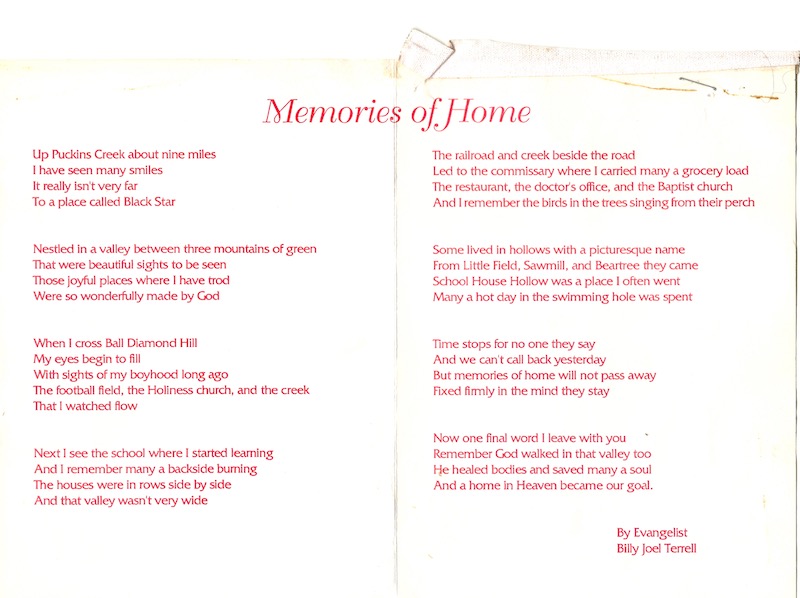 Memories of Home
Up Puckins Creek about nine miles
I have seen many smiles
It really isn't very far
To a place called Black Star
Nestled in a valley between three mountains of green
That were beautiful sights to be seen
Those joyful places where I have trod
Were so wonderfully made by God
When I cross Ball Diamond Hill
My eyes begin to fill
With sights of my boyhood long ago
The football field, the Holiness church, and the creek
That I watched flow
Next I see the school where I started learning
And I remember many a backside burning
The houses were in rows side by side
And that valley wasn't very wide
The railroad and creek beside the road
Led to the commissary where I carried many a grocery load
The restaurant, the doctor's office, and the Baptist church
And I remember the birds in the trees singing from their perch
Some lived in hollows with a picturesque name
From Little Field, Sawmill, and Beartree they came
School House Hollow was a place I often went
Many a hot day in the swimming hole was spent
Time stops for no one they say
And we can't call back yesterday
But memories of home will not pass away
Fixed firmly in the mind they stay
Now one final word I leave with you
Remember God walked in that valley too
He healed bodies and saved many a soul
And a home in Heaven became our goal.
By Evangelist
Billy Joel Terrell